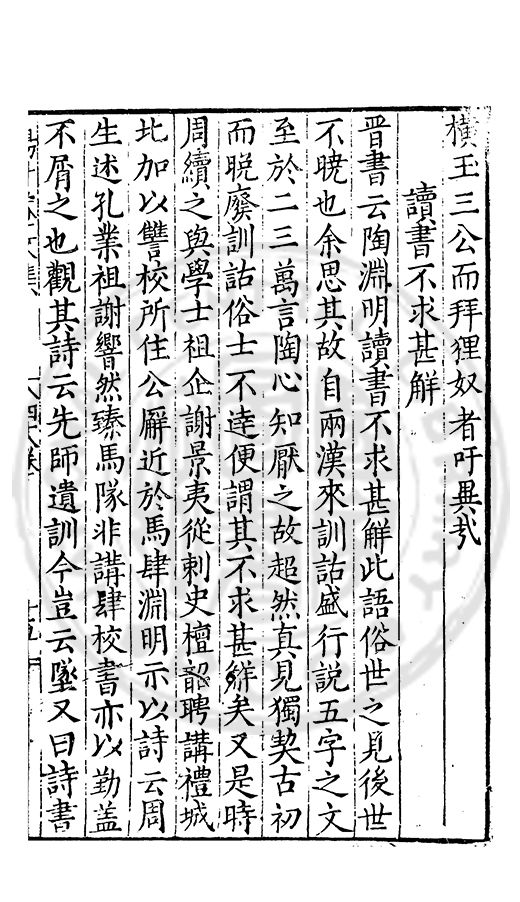 橫玉三公而拜狸奴者吁異哉
讀書不求甚解
晉書云陶淵明讀書不求甚解此語俗世之見後世
不曉也余思其故自兩漢來訓詁盛行說五字之文
至於二三萬言陶心知厭之故超然真見獨契古初
而晚廢訓詁俗士不達便謂其不求甚解矣又是時
周續之與學士祖企謝景夷從刺史檀韶聘講禮城
北加以讐校所住公廨近於馬肆淵明示以詩云周
生述孔業祖謝響然臻馬隊非講肆校書亦以勤蓋
不屑之也觀其詩云先師遺訓今豈云墜又曰詩書